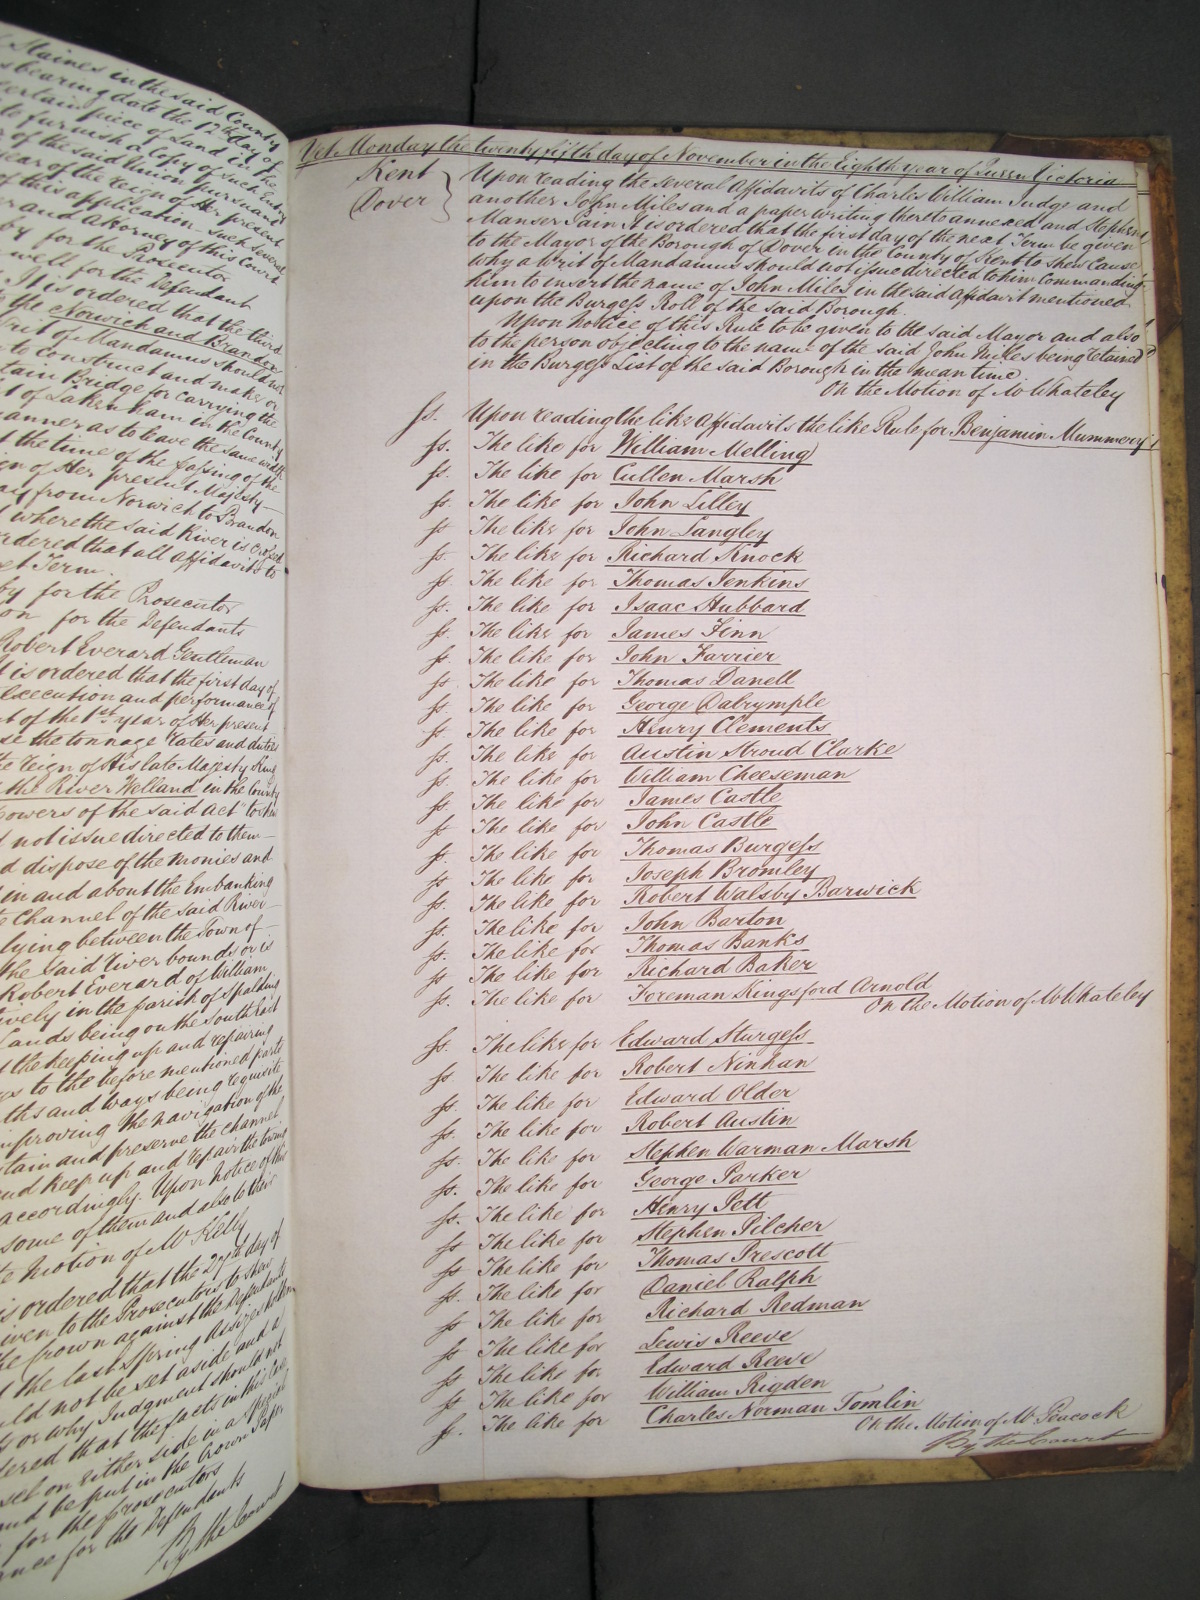 Staines in the said County
bearing date the 12th day of
certain piece of Land in the
to furnish a Copy of such Entry
of the said Union pursuant
year of the reign of Her present
of this application. Such several
and Attorney of this Court
by for the Prosecutor
well for the Defendant
It is ordered that the third
the Norwich and Brandon
Writ of Mandamus should not
to construct and make or
tain Bridge for carrying the
t of Lakenham in the County
anner as to leave the same width
t the time of the passing of the
ign of Her present Majesty
ay from Norwich to Brandon
where the said River is
rdered that all affidavits to
xt Term.
by for the Prosecutor
on for the Defendants
Robert Everard Gentleman
t is ordered that the first day of
Execution and performance of
t of the 1st year of Her present
se the tonnage rates and duties
e reign of His late Majesty King
the River Welland in the County
powers of the said Act" to
not issue directed to them
d dispose of the monies and
in and about the Embanking
e Channel of the said River
lying between the Town of
the said River bounds or is
Robert Everard of William
ively in the parish of Spalding
Lands being on the South East
t the keeping up and repairing
to the before mentioned parts
ths and Ways being requisite
mproving the navigation of the
tain and preserve the channel
nd keep up and repair the towing
accordingly. Upon Notice of this
some of them and also to their
e Motion of Mr Kelly
is ordered that the 27th day of
iven to the Prosecutors to shew
he Crown against the Defendants
t the last Spring Assizes holden
uld not be set aside and a
or why Judgment should not
dered that the facts in this Case
set on either side in a Special
nd be put in the Crown Paper
for the Prosecutors
ance for the Defendants
By the Court
Yet Monday the twenty fifth day of November in the Eighth year of Queen Victoria
Kent
Dover
Upon reading the several Affidavits of Charles William Judge and
another John Miles and a paper writing thereto annexed and Stephen
Manser Pain It is ordered that the first day of the next Term be given
to the Mayor of the Borough of Dover in the County of Kent to shew Cause
why a Writ of Mandamus should not issue directed to him Commanding
him to insert the name of John Miles in the said affidavit mentioned
upon the Burgess Roll of the said Borough.
Upon Notice of this Rule to be given to the said Mayor and also
to the person objecting to the name of the said John Miles being retained
in the Burgess List of the said Borough in the mean time
On the Motion of Mr Whateley
ss. Upon reading the like Affidavits the like Rule for Benjamin Mummery
ss. The like for William Melling
ss. The like for Cullen Marsh
ss. The like for John Lilley
ss The like for John Langley
ss. The like for Richard Knock
ss. The like for Thomas Jenkins
ss. The like for Isaac Hubbard
ss. The like for James Finn
ss. The like for John Farrier
ss. The like for Thomas Danell
ss. The like for George Dalrymple
ss. The like for Henry Clements
ss. The like for Austin Stroud Clarke
ss The like for William Cheeseman
ss The like for James Castle
ss The like for John Castle
ss. The like for Thomas Burgess
ss The like for Joseph Bromley
ss. The like for Robert Walsby Barwick
ss. The like for John Barton
ss. The like for Thomas Banks
ss The like for Richard Baker
ss. The like for Foreman Kingsford Arnold
On the Motion of Mr Whateley
ss. The like for Edward Sturgess
ss. The like for Robert Ninhan
ss. The like for Edward Older
ss. The like for Robert Austin
ss. The like for Stephen Warman Marsh
ss. The like for George Parker
ss. The like for Henry Pett
ss The like for Stephen Pilcher
ss The like for Thomas Prescott
ss. The like for Daniel Ralph
ss The like for Richard Redman
ss The like for Lewis Reeve
ss The like for Edward Reeve
ss The like for William Rigden
ss. The like for Charles Norman Tomlin
On the Motion of Mr Peacock
By the Court